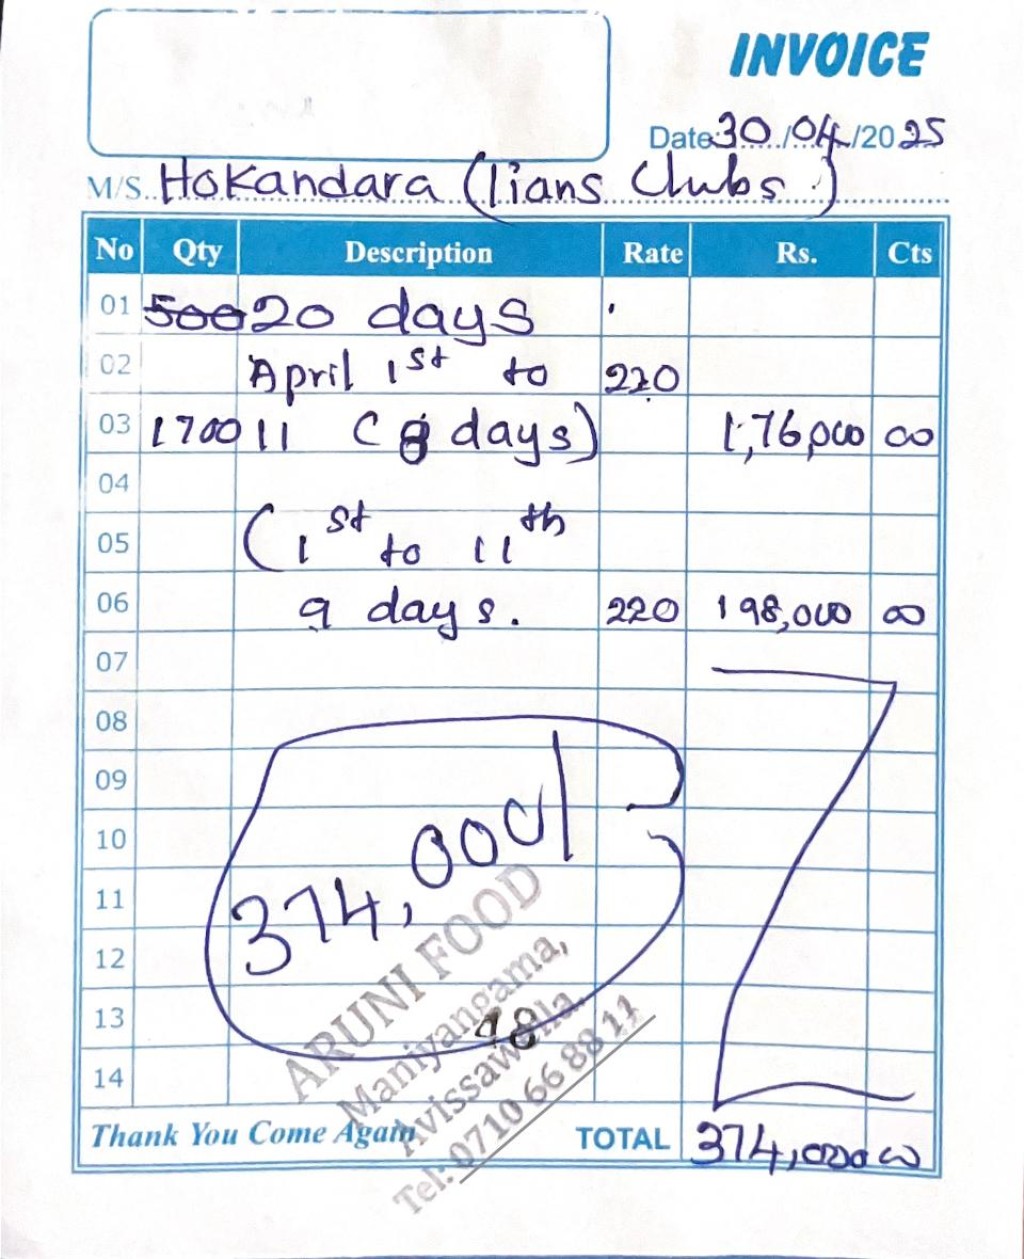 INVOICE
Date 30/04/2025
M/S. Hokandara (lians Clubs.)
No Qty Description Rate Rs. Cts
01 500 20 days
02 April 1st to 220
03 1700 11 (8 days) 1,76,000 00
04
05 (1st to 11th
06 9 days. 220 198,000 00
07
08
09
10
11
12
13
14
374,000/
ARUNI FOOD
Maniyangama,
Avissawella.
Tel: 0710 66 88 11
48
Thank You Come Again TOTAL 374,000 00